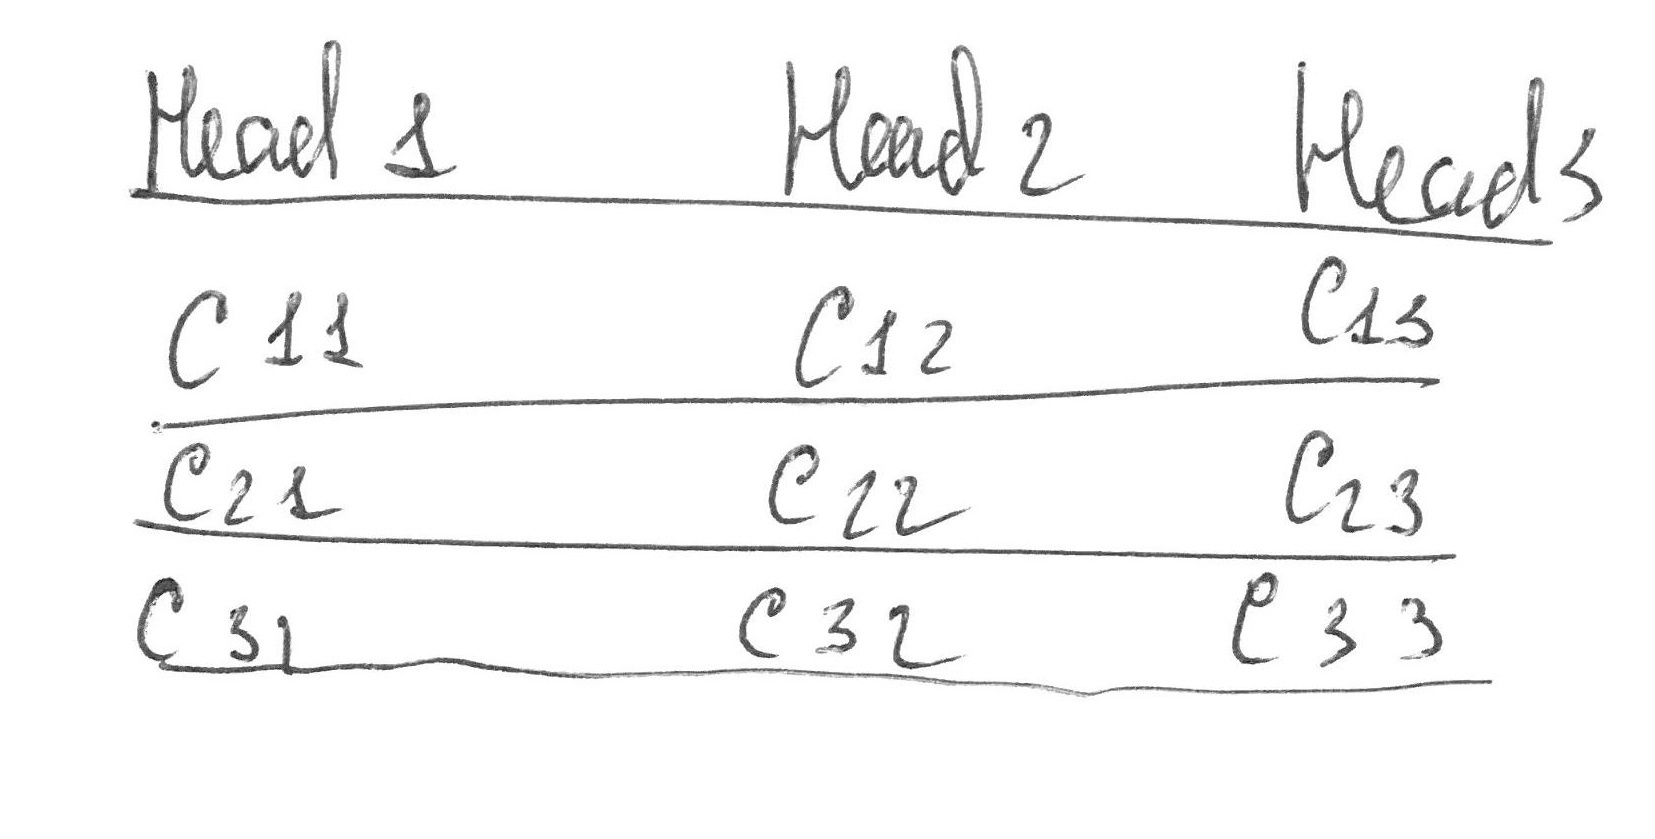 Head 1 Head 2 Head 3
C 11 C12 C13
C21 C 22 C23
C 31 C 32 C 33